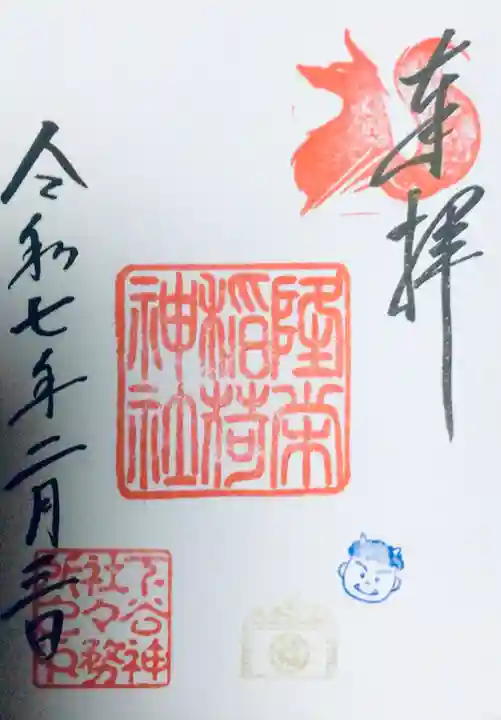 奉拝
隆栄
稲荷
神社
令和七年二月三日
下谷神
社々務
所之印